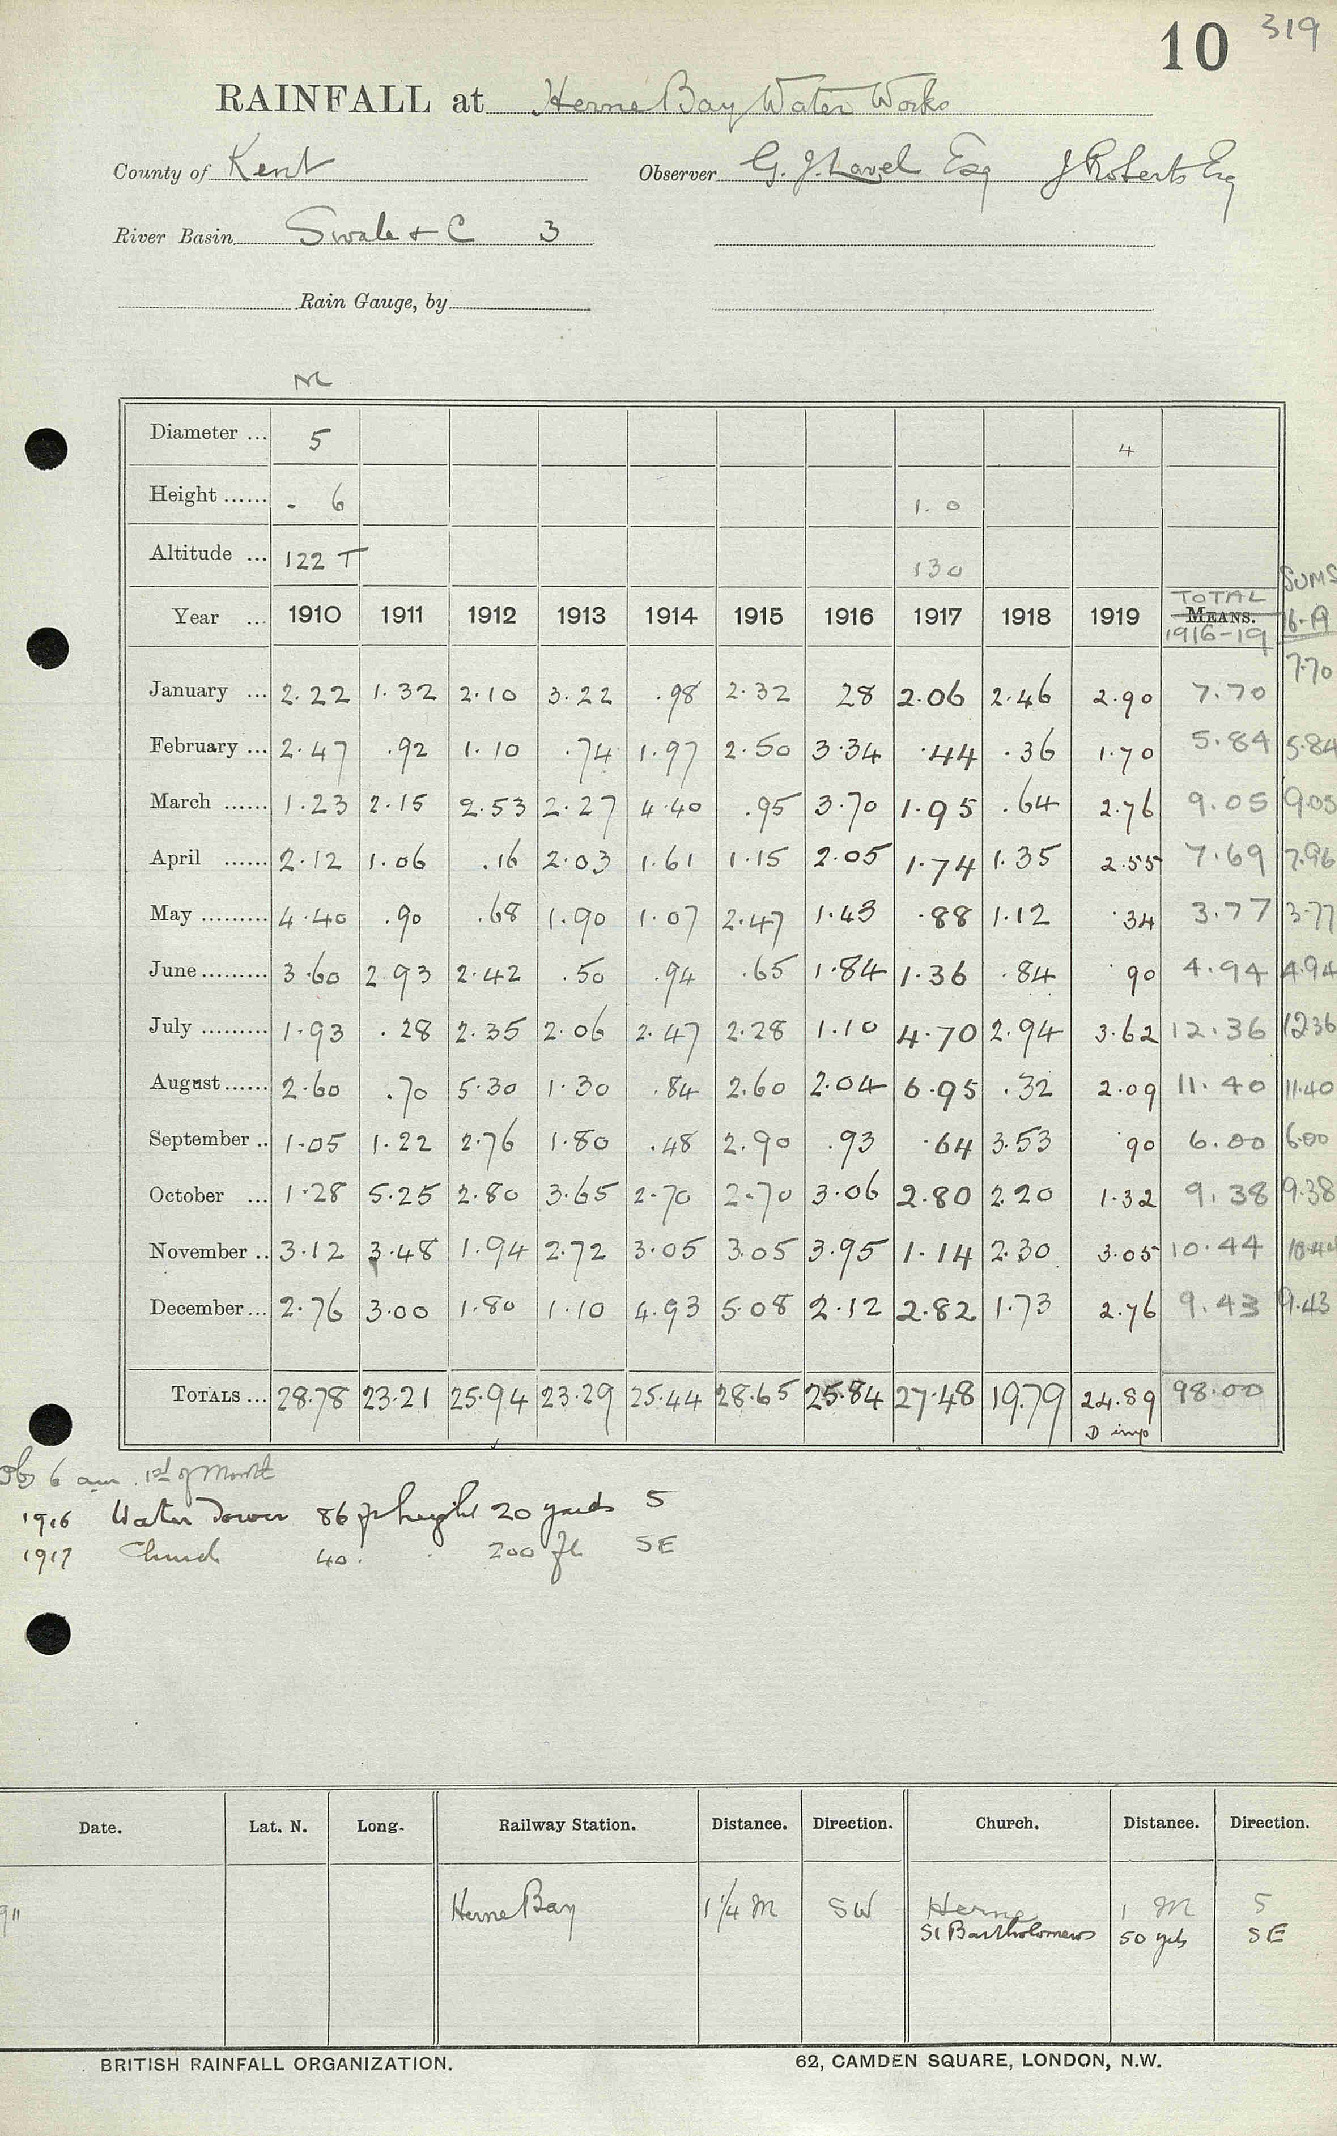 10 319
RAINFALL at Herne Bay Water Works
County of Kent Observer G. J. Lavel Esq J Roberts Esq
River Basin Swale & C 3
Rain Gauge, by
M
Diameter ... 5 4
Height ...... . 6 1. 0
Altitude ... 122 T 130
SUMS
TOTAL
Year ... 1910 1911 1912 1913 1914 1915 1916 1917 1918 1919 MEANS. 16-19
1916-19
January ... 2.22 1.32 2.10 3.22 .98 2.32 28 2.06 2.46 2.90 7.70 7.70
February ... 2.47 .92 1.10 .74 1.97 2.50 3.34 .44 .36 1.70 5.84 5.84
March ...... 1.23 2.15 2.53 2.27 4.40 .95 3.70 1.95 .64 2.76 9.05 9.05
April ...... 2.12 1.06 .16 2.03 1.61 1.15 2.05 1.74 1.35 2.55 7.69 7.96
May ......... 4.40 .90 .68 1.90 1.07 2.47 1.43 .88 1.12 .34 3.77 3.77
June ......... 3.60 2.93 2.42 .50 .94 .65 1.84 1.36 .84 90 4.94 4.94
July ......... 1.93 .28 2.35 2.06 2.47 2.28 1.10 4.70 2.94 3.62 12.36 1236
August ...... 2.60 .70 5.30 1.30 .84 2.60 2.04 6.95 .32 2.09 11.40 11.40
September .. 1.05 1.22 2.76 1.80 .48 2.90 .93 .64 3.53 .90 6.00 6.00
October ... 1.28 5.25 2.80 3.65 2.70 2.70 3.06 2.80 2.20 1.32 9.38 9.38
November .. 3.12 3.48 1.94 2.72 3.05 3.05 3.95 1.14 2.30 3.05 10.44 10.44
December ... 2.76 3.00 1.80 1.10 4.93 5.08 2.12 2.82 1.73 2.76 9.43 9.43
TOTALS ... 28.78 23.21 25.94 23.29 25.44 28.65 25.84 27.48 19.79 24.89 98.00
D imp
6 am 1st of Month
1916 Water Tower 86 ft height 20 yards S
1917 Church 40. 200 ft SE
Date. Lat. N. Long. Railway Station. Distance. Direction. Church. Distance. Direction.
911 Herne Bay 1 1/4 M SW Herne 1 M S
St Bartholomews 50 yds SE
BRITISH RAINFALL ORGANIZATION. 62, CAMDEN SQUARE, LONDON, N.W.